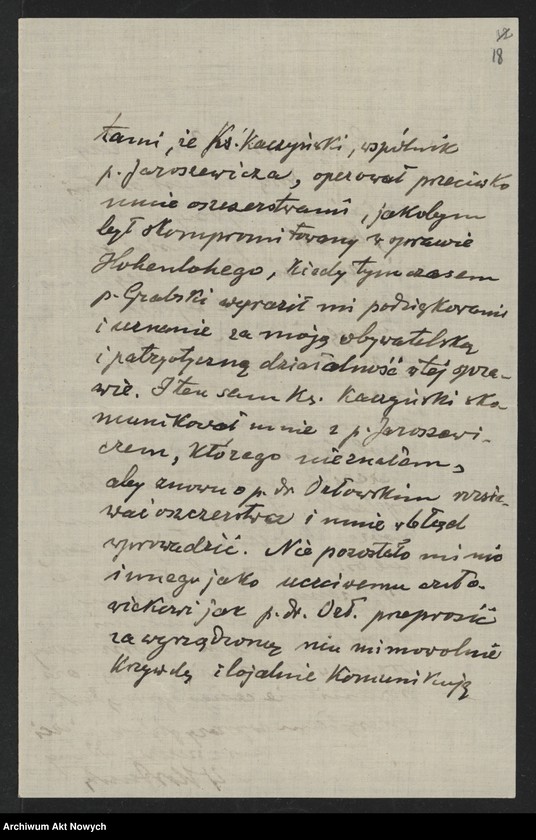 18
18
tami, że Ks. Kaczyński, wspólnik
p. Jaroszewicza, operował przeciwko
mnie oszczerstwami, jakobym
był skompromitowany w sprawie
Hohenlohego, kiedy tymczasem
p. Grabski wyraził mi podziękowanie
i uznanie za moją obywatelską
i patryotyczną działalność w tej spra-
wie. I ten sam Ks. Kaczyński sko-
munikował mnie z p. Jaroszewi-
czem, którego nieznałam,
aby znowu o p. dr. Orłowskim rozsie-
wać oszczerstwa i mnie w błąd
wprowadzić. Nie pozostało mi nic
innego jako uczciwemu czło-
wiekowi jak p. dr. Orł. przeprosić
za wyrządzoną mu mimowolnie
krzywdę i lojalnie komunikują
Archiwum Akt Nowych